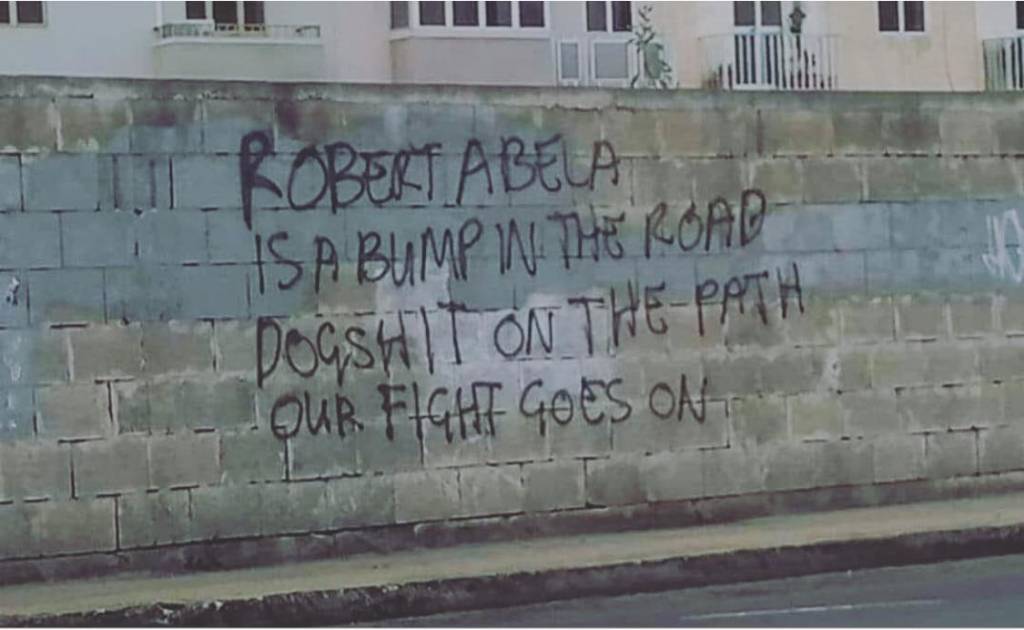 ROBERT ABELA
IS A BUMP IN THE ROAD
DOGSHIT ON THE PATH
OUR FIGHT GOES ON